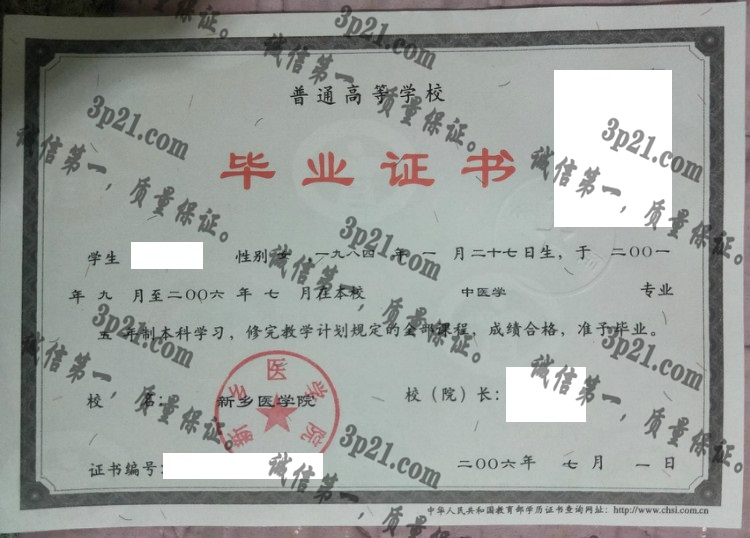 普通高等学校
毕业证书
学生 性别 女，一九八四 年 一 月二十七日生，于 二〇〇一
年 九 月至二〇〇六 年 七 月在本校 中医学 专业
五 年制本科学习，修完教学计划规定的全部课程，成绩合格，准予毕业。
校 名： 新乡医学院 校（院）长：
新乡医学院
证书编号： 二〇〇六年 七月 一日
中华人民共和国教育部学历证书查询网址：http://www.chsi.com.cn
3p21.com
诚信第一，质量保证。
3p21.com
诚信第一，质量保证。
3p21.com
诚信第一，质量保证。
3p21.com
诚信第一，质量保证。
3p21.com
诚信第一，质量保证。
3p21.com
诚信第一，质量保证。
3p21.com
诚信第一，质量保证。